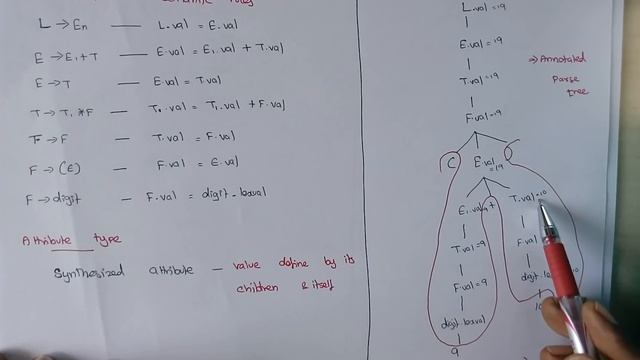 rules
L → En — L.val = E.val
E → E1 + T — E.val = E1.val + T.val
E → T — E.val = T.val
T → T1 * F — T.val = T1.val + F.val
T → F — T.val = F.val
F → (E) — F.val = E.val
F → digit — F.val = digit.lexval
Attribute type
Synthesized attribute — value define by its
children & itself
L.val = 19
E.val = 19
T.val = 19
F.val = 19
⇒ Annotated
Parse
tree
( E.val = 19 )
E1.val 9 + T.val = 10
T.val = 9 F.val
F.val = 9 digit
digit.lexval
9